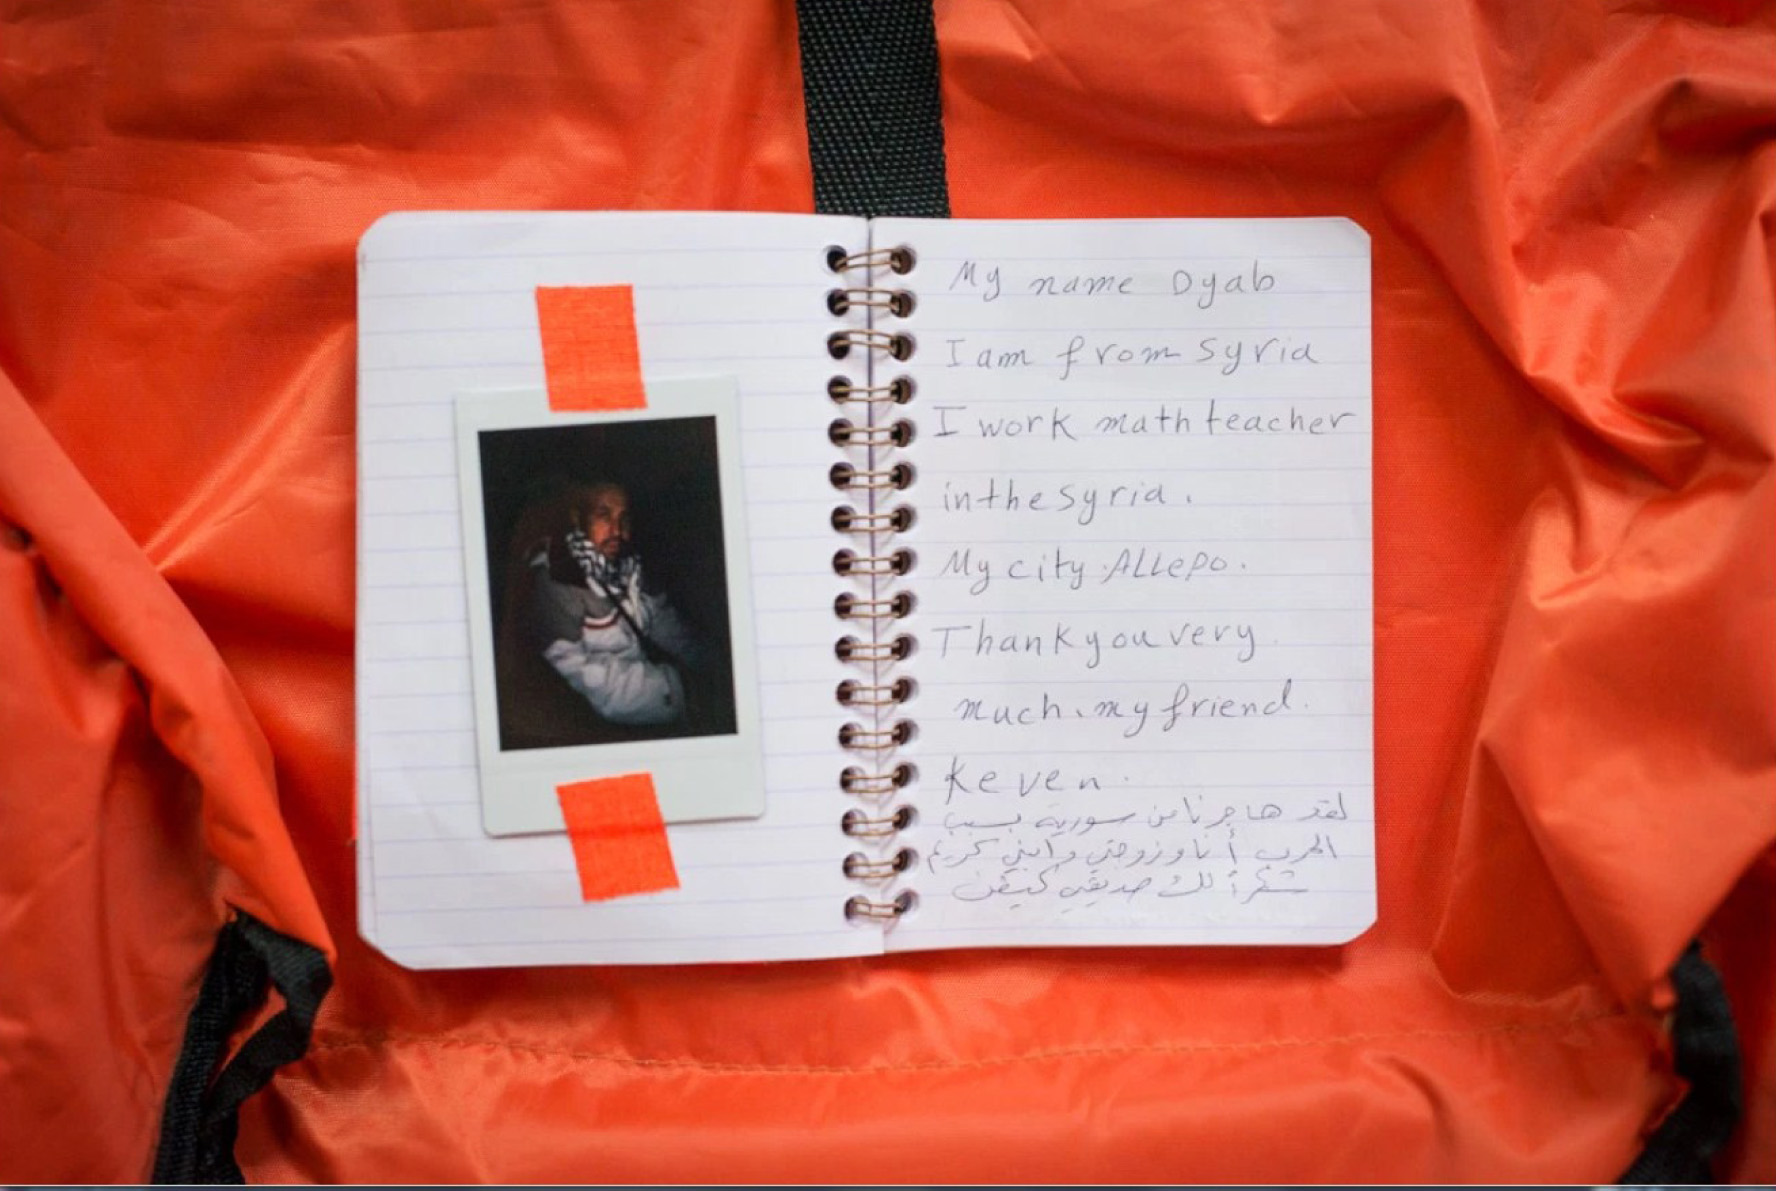 My name Dyab
I am from Syria
I work math teacher
in the Syria.
My city ALLepo.
Thank you very
much. my friend.
Keven.
لقد هاجرنا من سورية بسبب
الحرب أنا وزوجتي وابني كريم
شكراً لك صديقي كيفن